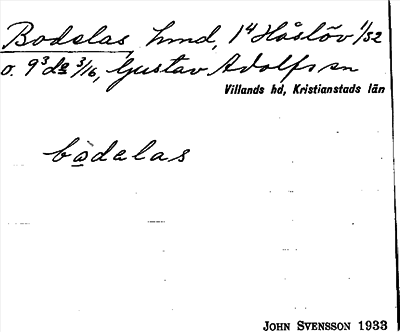 Bodelas hmd, 1⁴ Håslöv 1/32
o. 9³ do 3/16, Gustav Adolfs sn
Villands hd, Kristianstads län
bodelas
JOHN SVENSSON 1933